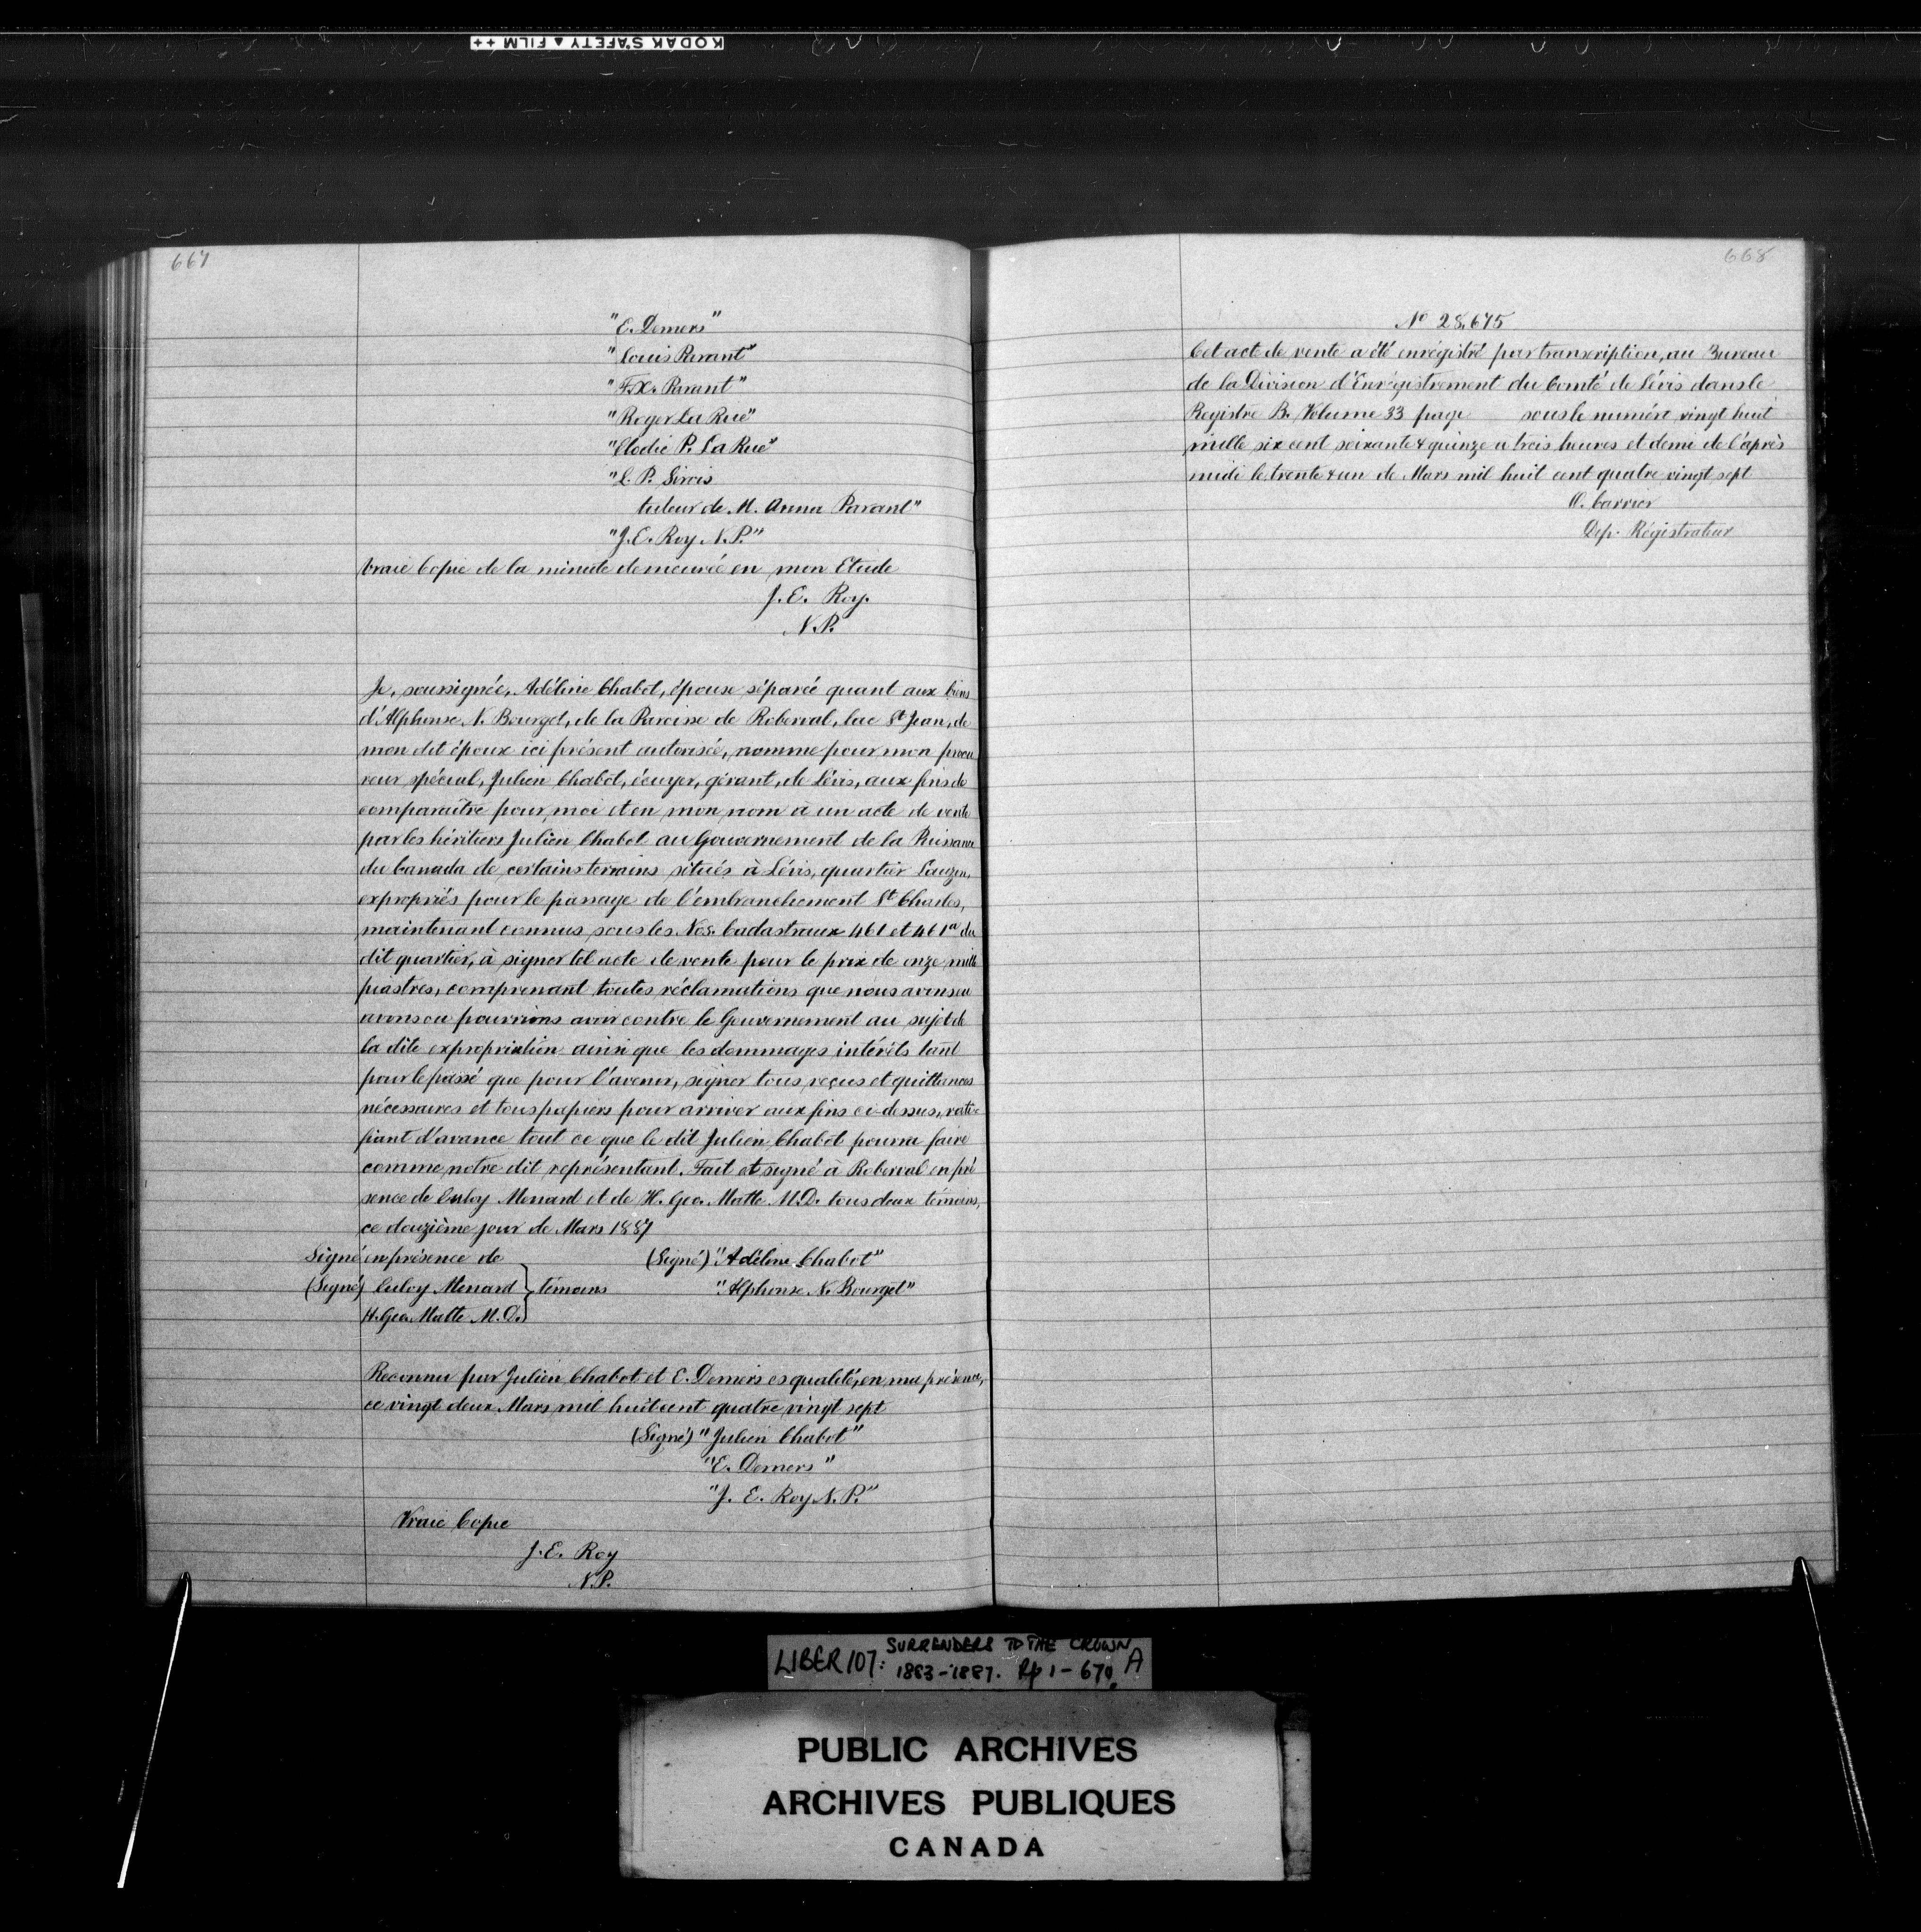 KODAK SAFETY ▲ FILM ++
667
"E. Demers"
"Louis Parant"
"F.X. Parant"
"Roger La Rue"
"Elodie P. La Rue"
"L. P. Sirois
tuteur de M. Anna Parant"
"J.E. Roy N.P."
Vraie Copie de la minute demeurée en mon Etude
J. E. Roy.
N.P.
Je, soussignée, Adéline Chabot, épouse séparée quant aux biens
d'Alphonse N. Bourget, de la Paroisse de Roberval, lac St Jean, de
mon dit époux ici présent autorisée, nomme pour mon procu
reur spécial, Julien Chabot, écuyer, gérant, de Lévis, aux fins de
comparaître pour moi et en mon nom à un acte de vente
par les héritiers Julien Chabot au Gouvernement de la Puissance
du Canada de certains terrains situés à Lévis, quartier Lauzon,
expropriés pour le passage de l'embranchement St Charles,
maintenant connus sous les Nos. Cadastraux 461 et 461a du
dit quartier, à signer tel acte de vente pour le prix de onze mille
piastres, comprenant toutes réclamations que nous avons eu
avons ou pourrions avoir contre le Gouvernement au sujet de
la dite expropriation ainsi que les dommages intérêts tant
pour le passé que pour l'avenir, signer tous reçus et quittances
nécessaires et tous papiers pour arriver aux fins ci-dessus, rati-
fiant d'avance tout ce que le dit Julien Chabot pourra faire
comme notre dit représentant. Fait et signé à Roberval en pré
sence de Menard et de H. Geo. Matte M.D. tous deux témoins,
ce douzième jour de Mars 1887
Signé en présence de (Signé) "Adéline Chabot"
(Signé) Menard } témoins "Alphonse N. Bourget"
H. Geo. Matte M.D.
Reconnu par Julien Chabot et E. Demers es qualité, en ma présence,
ce vingt deux Mars mil huit cent quatre vingt sept
(Signé) "Julien Chabot"
"E. Demers"
"J. E. Roy N.P."
Vraie Copie
J. E. Roy
N.P.
668
No 28,675
Cet acte de vente a été enrégistré par transcription, au Bureau
de la Division d'Enrégistrement du Comté de Lévis dans le
Registre B. Volume 33 page sous le numéro vingt huit
mille six cent soixante & quinze a trois heures et demi de l'après
midi le trente & un de Mars mil huit cent quatre vingt sept
O. Carrier
Dep. Régistrateur
LIBER 107: SURRENDERS TO THE CROWN
1883-1887. Pp 1-670, A
PUBLIC ARCHIVES
ARCHIVES PUBLIQUES
CANADA